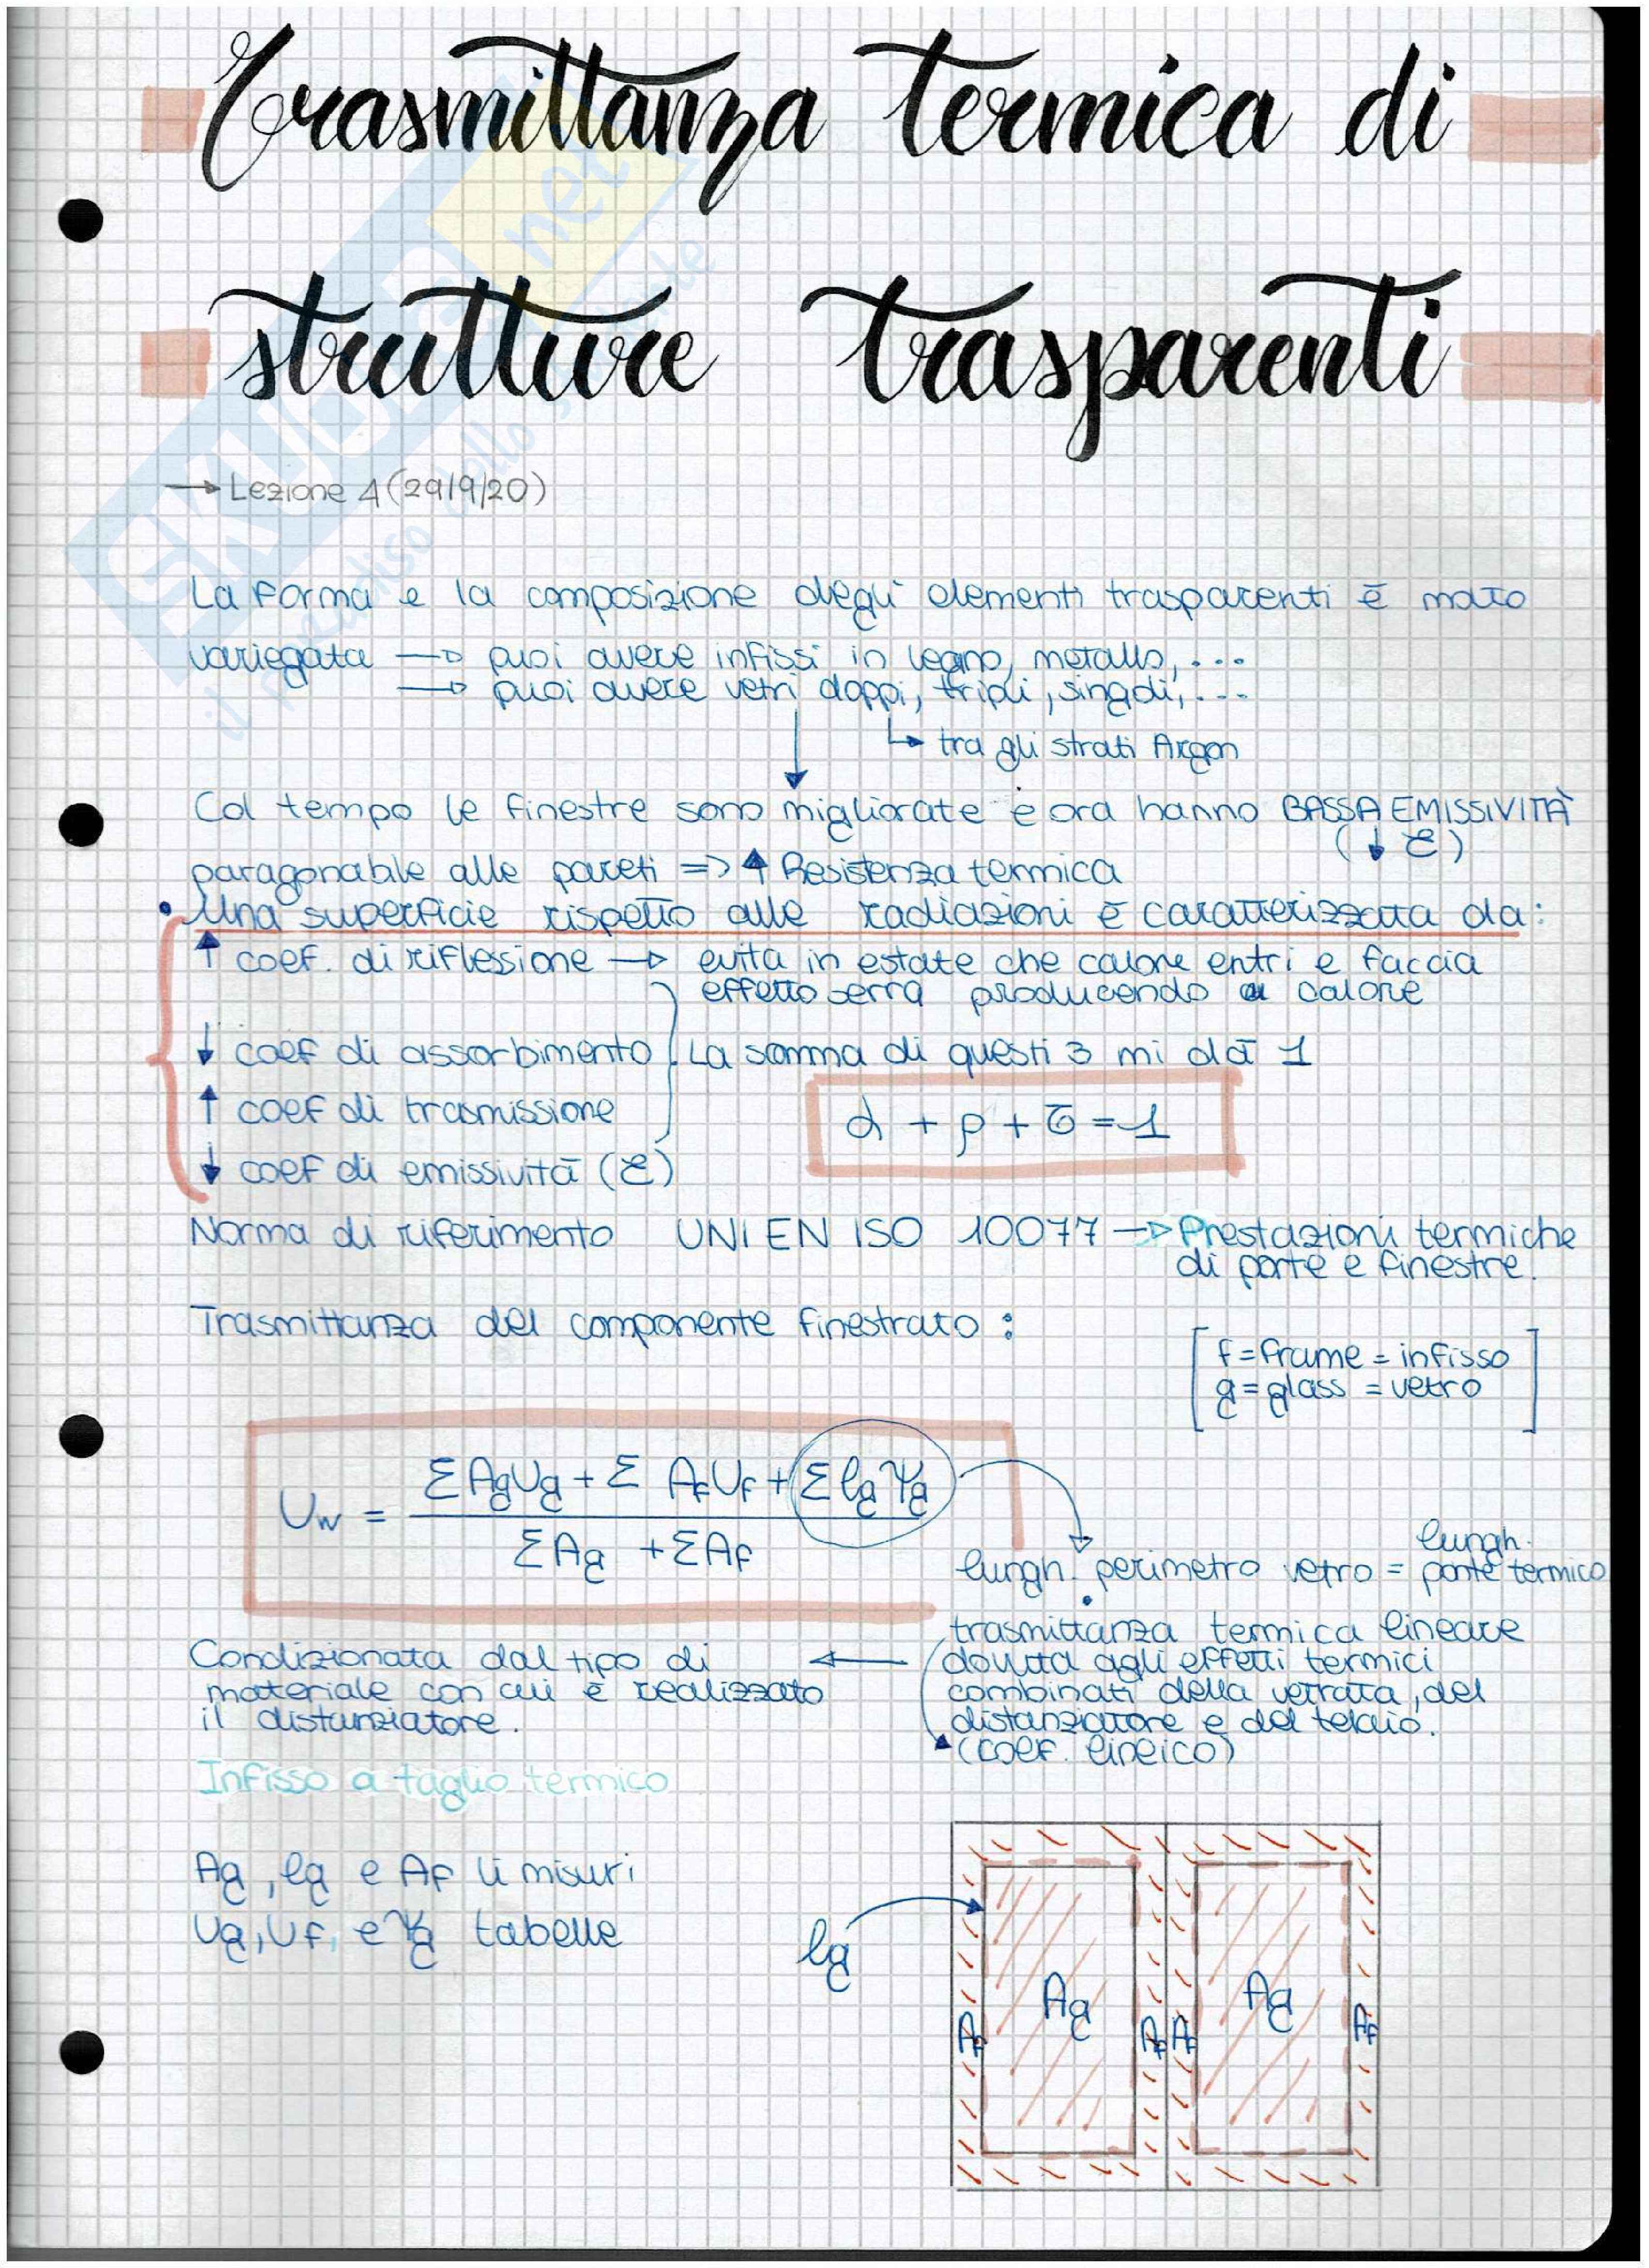 Trasmittanza termica di
strutture trasparenti
→ Lezione 4 (29/9/20)
La forma e la composizione degli elementi trasparenti è molto
variegata → puoi avere infissi in legno, metallo, ...
→ puoi avere vetri doppi, tripli, singoli, ...
↳ tra gli strati Argon
Col tempo le finestre sono migliorate e ora hanno BASSA EMISSIVITÀ
(↓ Ɛ)
paragonabile alle pareti => ↑ Resistenza termica
• Una superficie rispetto alle radiazioni è caratterizzata da:
↑ coef. di riflessione → evita in estate che calore entri e faccia
effetto serra producendo calore
↓ coef di assorbimento La somma di questi 3 mi dà 1
↑ coef di trasmissione
α + ρ + τ = 1
↓ coef di emissività (Ɛ)
Norma di riferimento UNI EN ISO 10077 → Prestazioni termiche
di porte e finestre.
Trasmittanza del componente finestrato :
f = frame = infisso
g = glass = vetro
Uw = (Σ Ag Ug + Σ Af Uf + Σ lg Ψg) / (Σ Ag + Σ Af)
lungh. perimetro vetro = lungh. ponte termico
trasmittanza termica lineare
dovuta agli effetti termici
combinati della vetrata, del
distanziatore e del telaio.
(coef. lineico)
Condizionata dal tipo di
materiale con cui è realizzato
il distanziatore.
Infisso a taglio termico
Ag, lg e Af li misuri
Ug, Uf, e Ψg tabelle
lg
Ag
Ag
Af
Af
Af
Af
SKUOLA.net
il paradiso dello studente